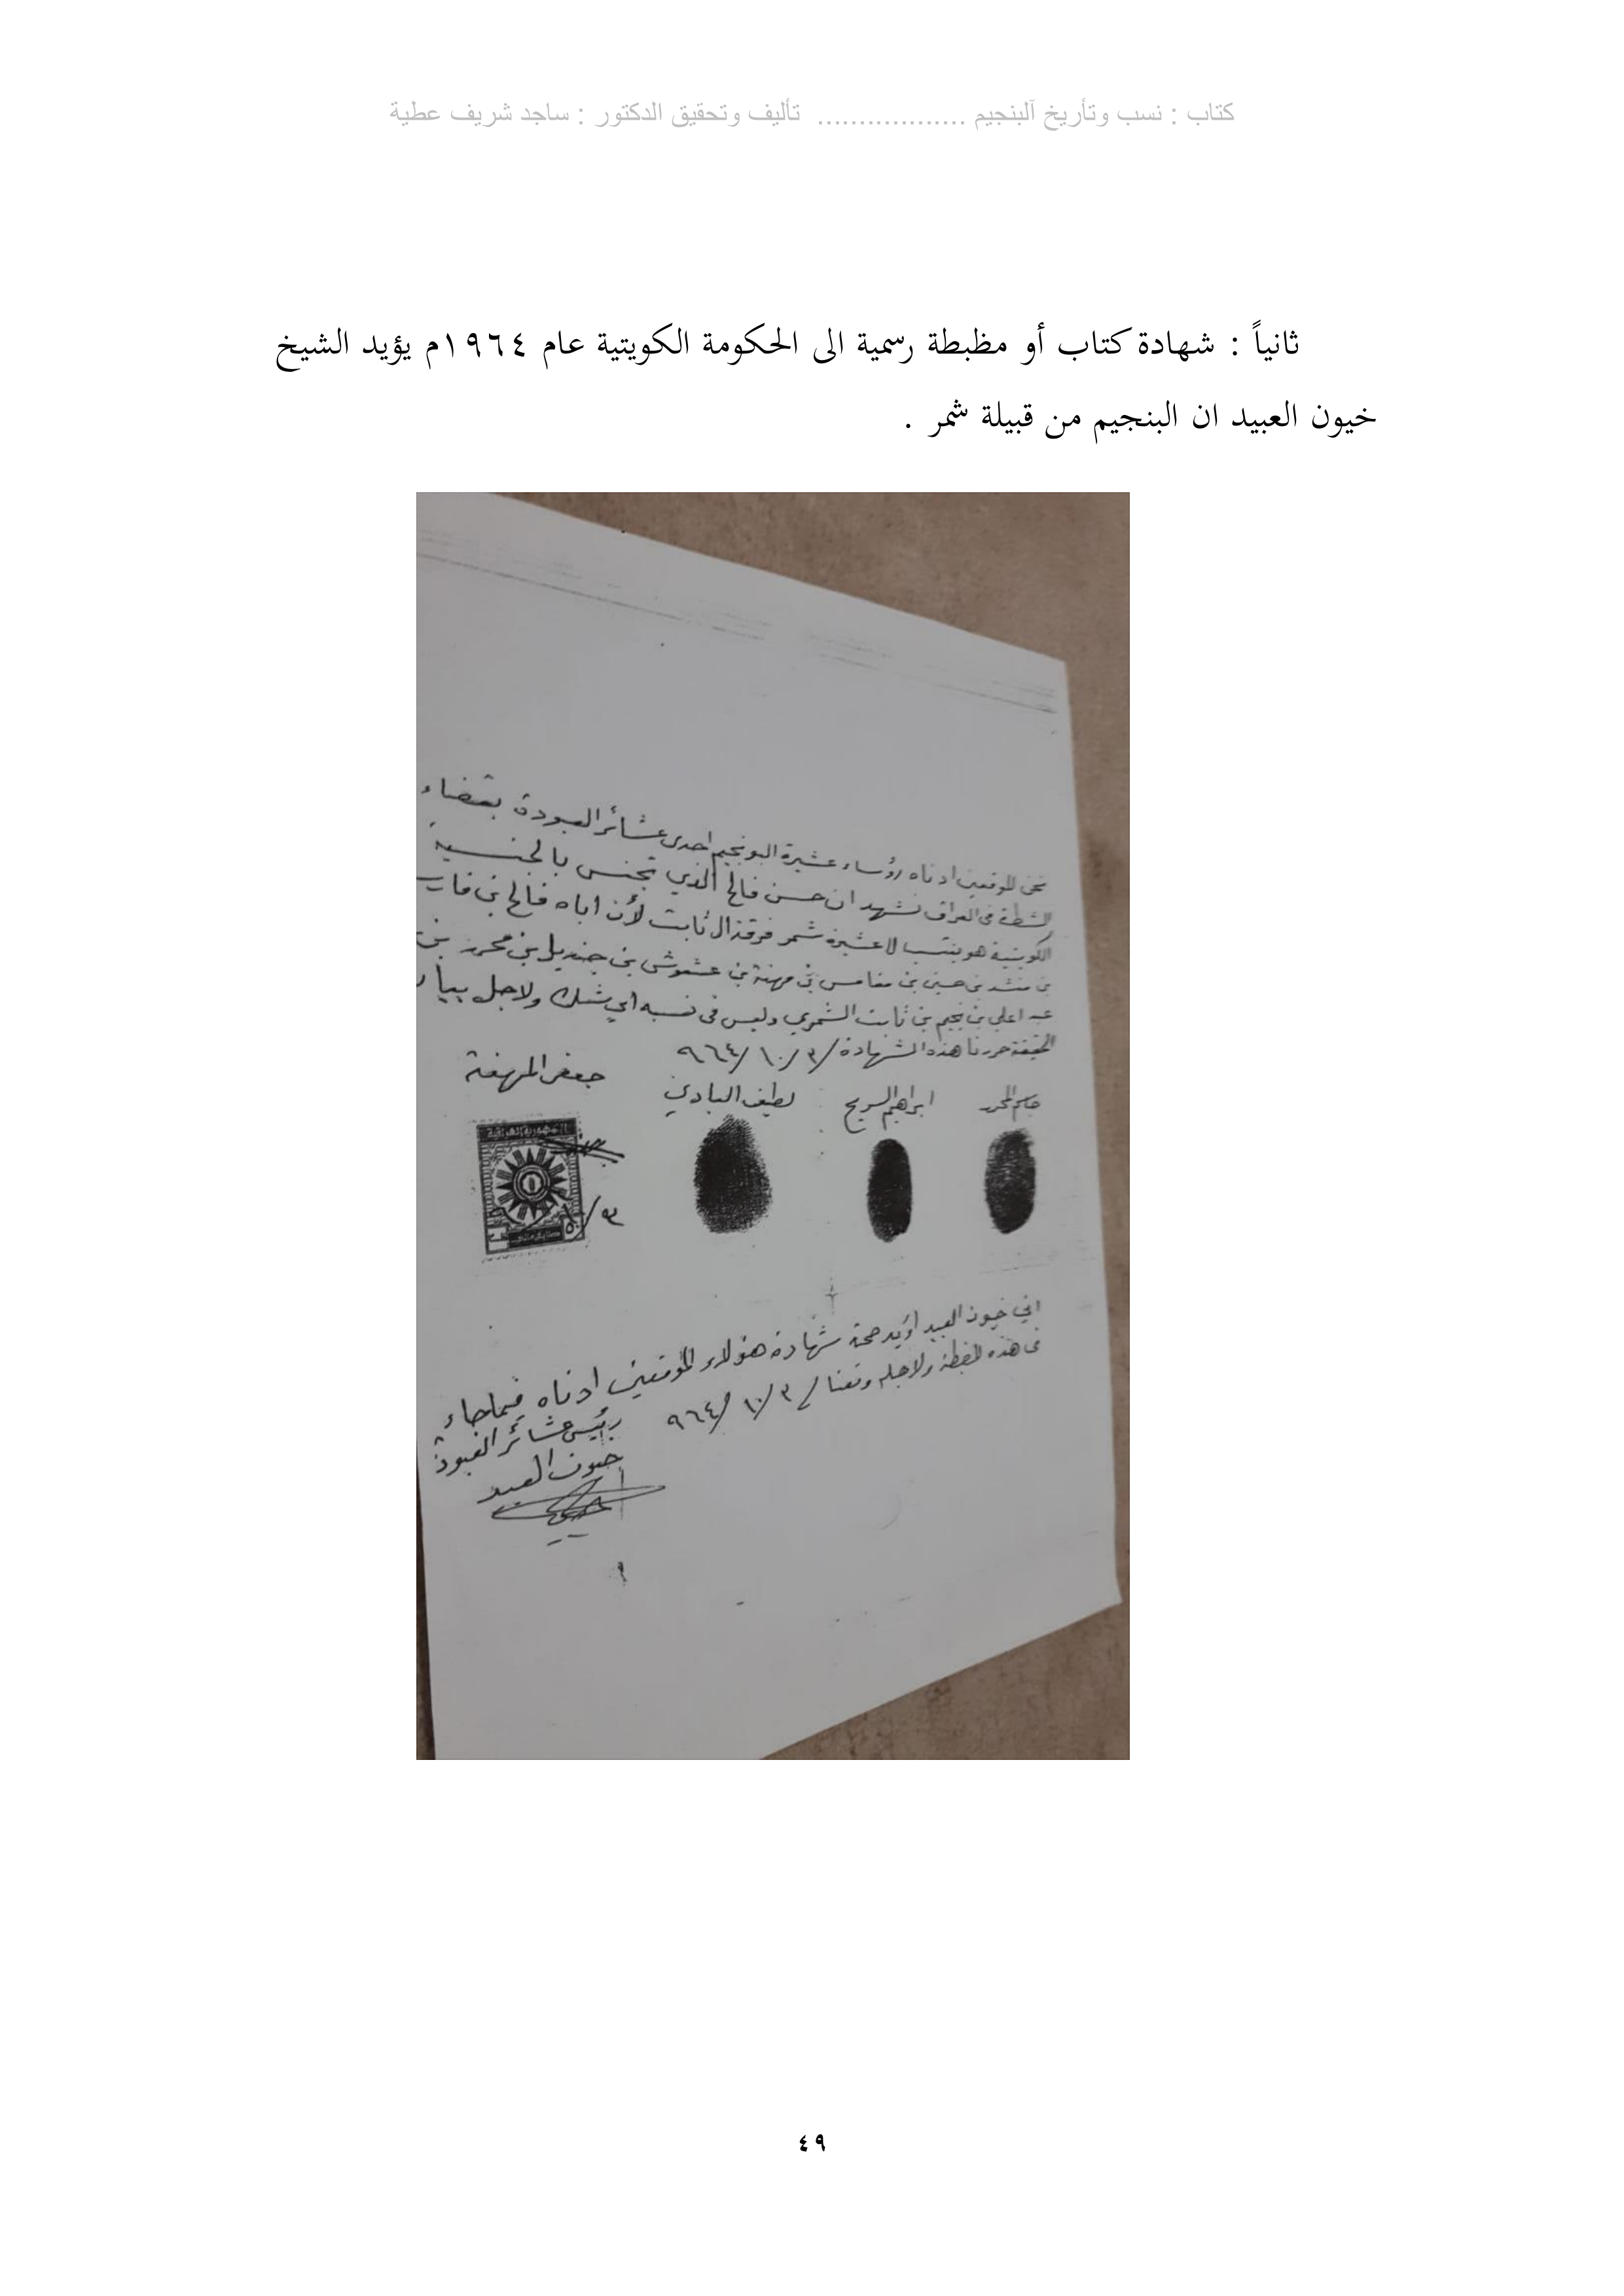 كتاب : نسب وتأريخ آلبنجيم .................. تأليف وتحقيق الدكتور : ساجد شريف عطية
ثانياً : شهادة كتاب أو مظبطة رسمية الى الحكومة الكويتية عام ١٩٦٤م يؤيد الشيخ
خيون العبيد ان البنجيم من قبيلة شمر .
نحن الموقعين ادناه رؤساء عشيرة البونجيم احدى عشائر العبودة بقضاء
الشطرة في العراق نشهد ان حسن فالح الذي تجنس بالجنسية
الكويتية هو ينتسب لاعشيرة شمر فرقة ال ثابت لأن اباه فالح بن فارس
بن منشد بن حسين بن مغامس بن مهنة بن عشوش بن جنديل بن محرز بن
عبد اعلي بن نجيم بن ثابت الشمري وليس في نسبه اي شك ولاجل بيان
الحقيقة حررنا هذه الشهادة / ٣ / ١٠ / ٩٦٤
جاسم المحرز ابراهيم السريح لطيف البادي جعفر المهنة
الجمهورية العراقية
٥٠
٣/١٠
اني خيون العبيد اؤيد صحة شهادة هؤلاء الموقعين ادناه فيما جاء
في هذه المضبطة ولاجله وقعنا / ٣ / ١٠ / ٩٦٤
رئيس عشائر العبودة
خيون العبيد
٤٩